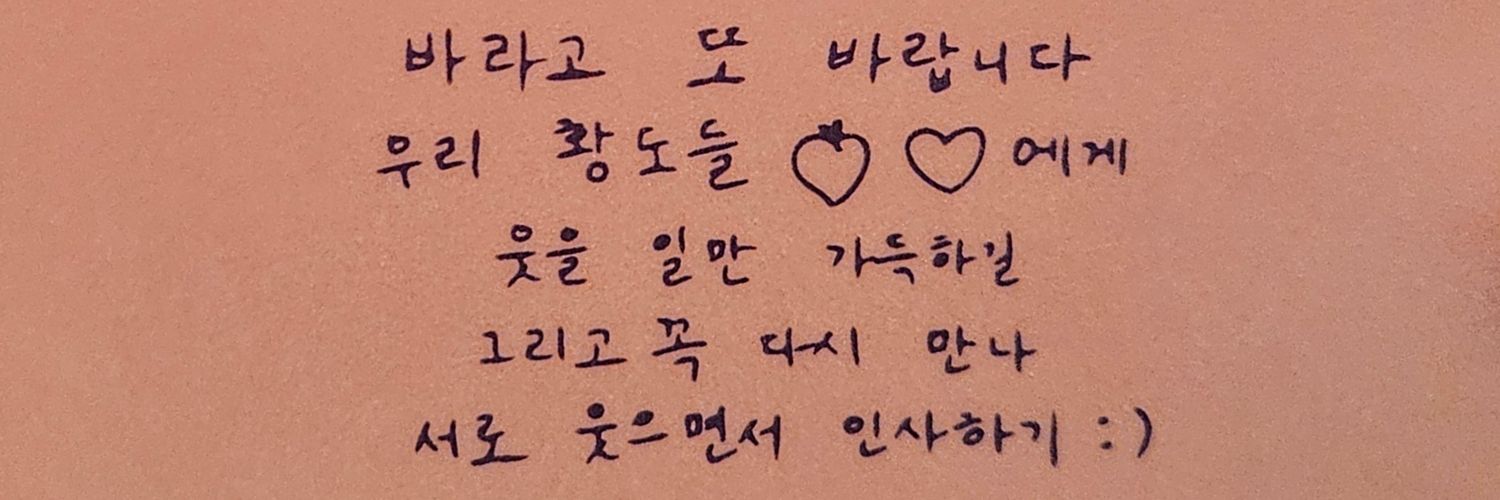 바라고 또 바랍니다
우리 황도들 ♡ 에게
웃을 일만 가득하길
그리고 꼭 다시 만나
서로 웃으면서 인사하기 :)